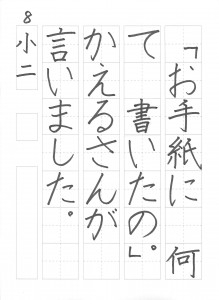 「お手紙に　何
て　書いたの」。
かえるさんが
言いました。
8
小二